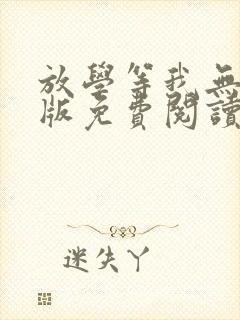 放學等我無
版免費閱讀
迷失丫